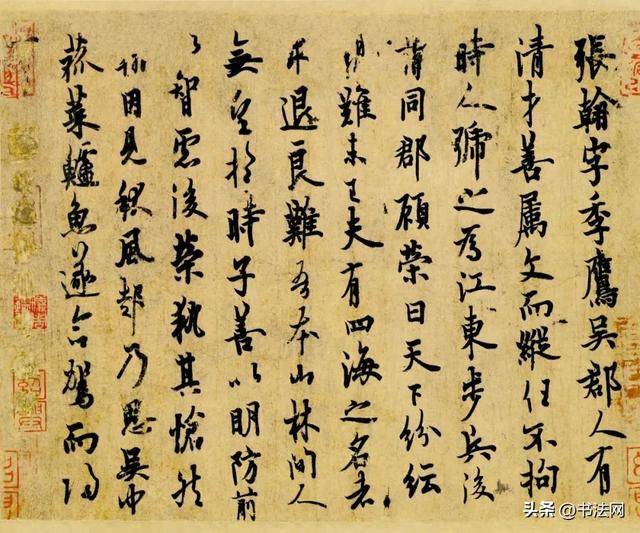 張翰字季鷹吳郡人有
清才善屬文而縱任不拘
時人號之為江東步兵後
謂同郡顧榮曰天下紛紜
禍難未已夫有四海之名者
求退良難吾本山林間人
無望於時子善以明防前
以智慮後榮執其愴然
翰因見秋風起乃思吳中
菰菜鱸魚遂命駕而歸
头条 @书法网